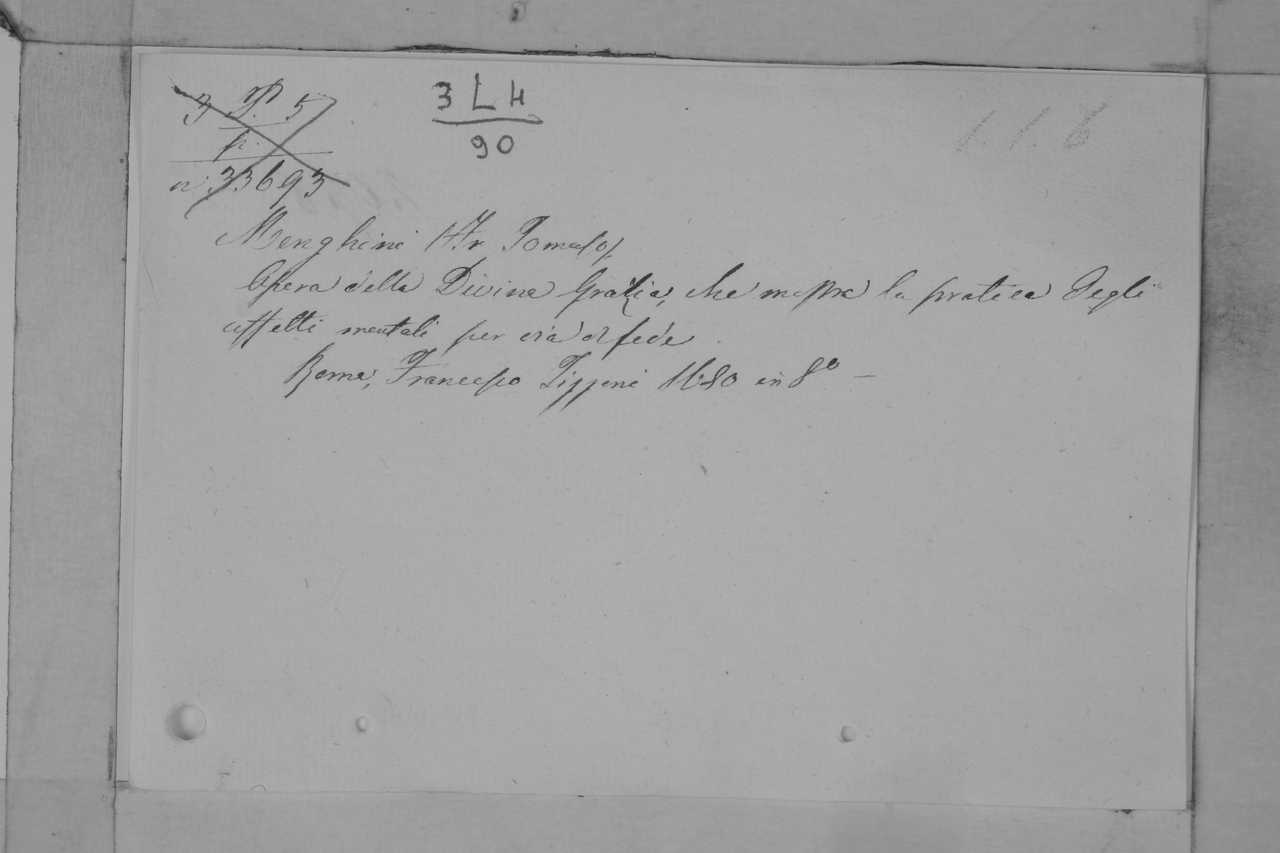 3 L 4
90
1. 1. 6
n. 33693
Menghini (Fr Tomaso)
Opera della Divina Grazia, che mostra la pratica degli
affetti mentali per via di fede
Roma, Francesco Tizzoni 1680 in 8º —